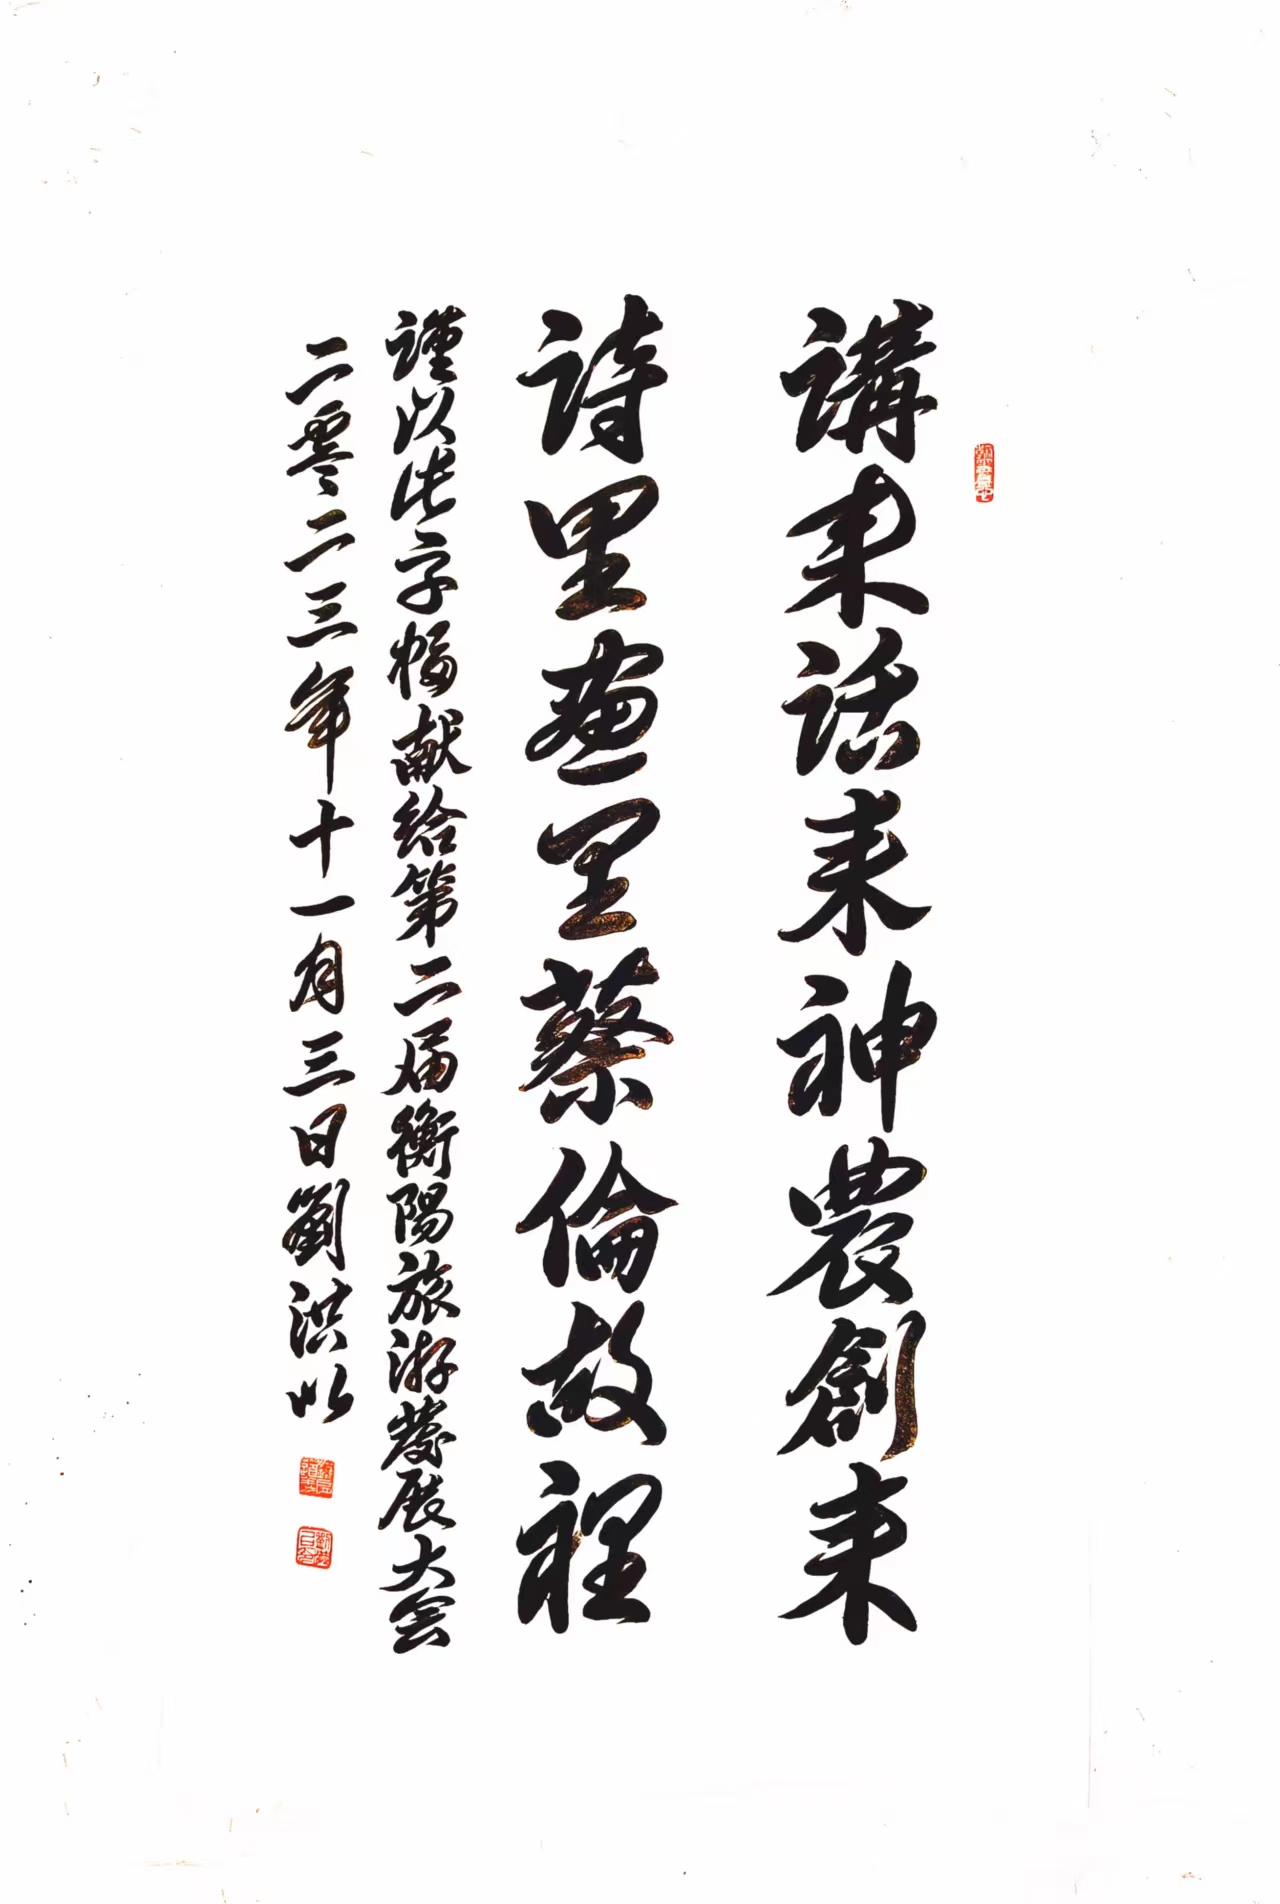 講耒話耒神農創耒
詩里畫里蔡倫故裡
謹以此字幅献給第二届衡陽旅游發展大会
二零二三年十一月三日劉洪